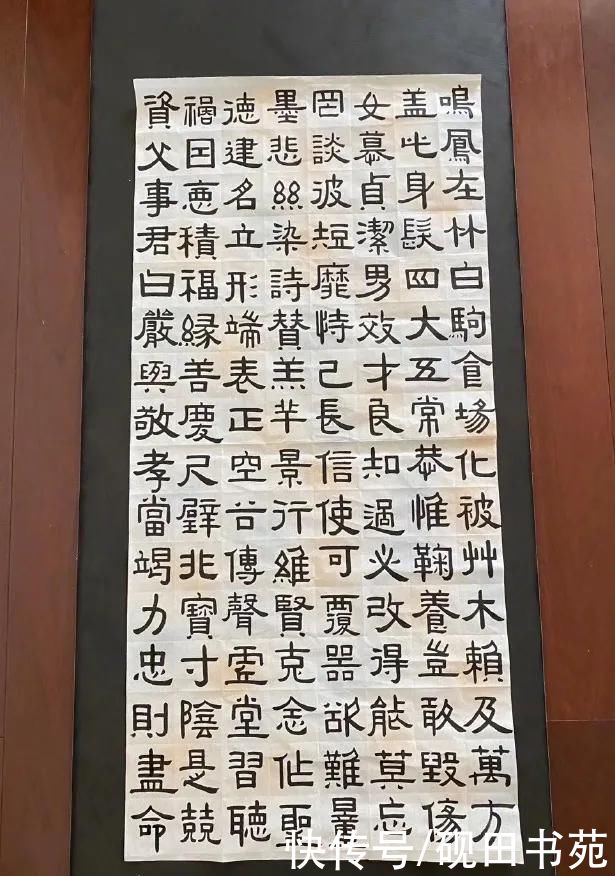 鳴鳳在竹白駒食場化被艸木賴及萬方
盖此身髮四大五常恭惟鞠養豈敢毀傷
女慕貞潔男效才良知過必改得能莫忘
罔談彼短靡恃己長信使可覆器欲難量
墨悲絲染詩贊羔羊景行維賢克念作聖
德建名立形端表正空谷傳聲虛堂習聽
禍因惡積福緣善慶尺璧非寶寸陰是競
資父事君曰嚴與敬孝當竭力忠則盡命
快传号/砚田书苑